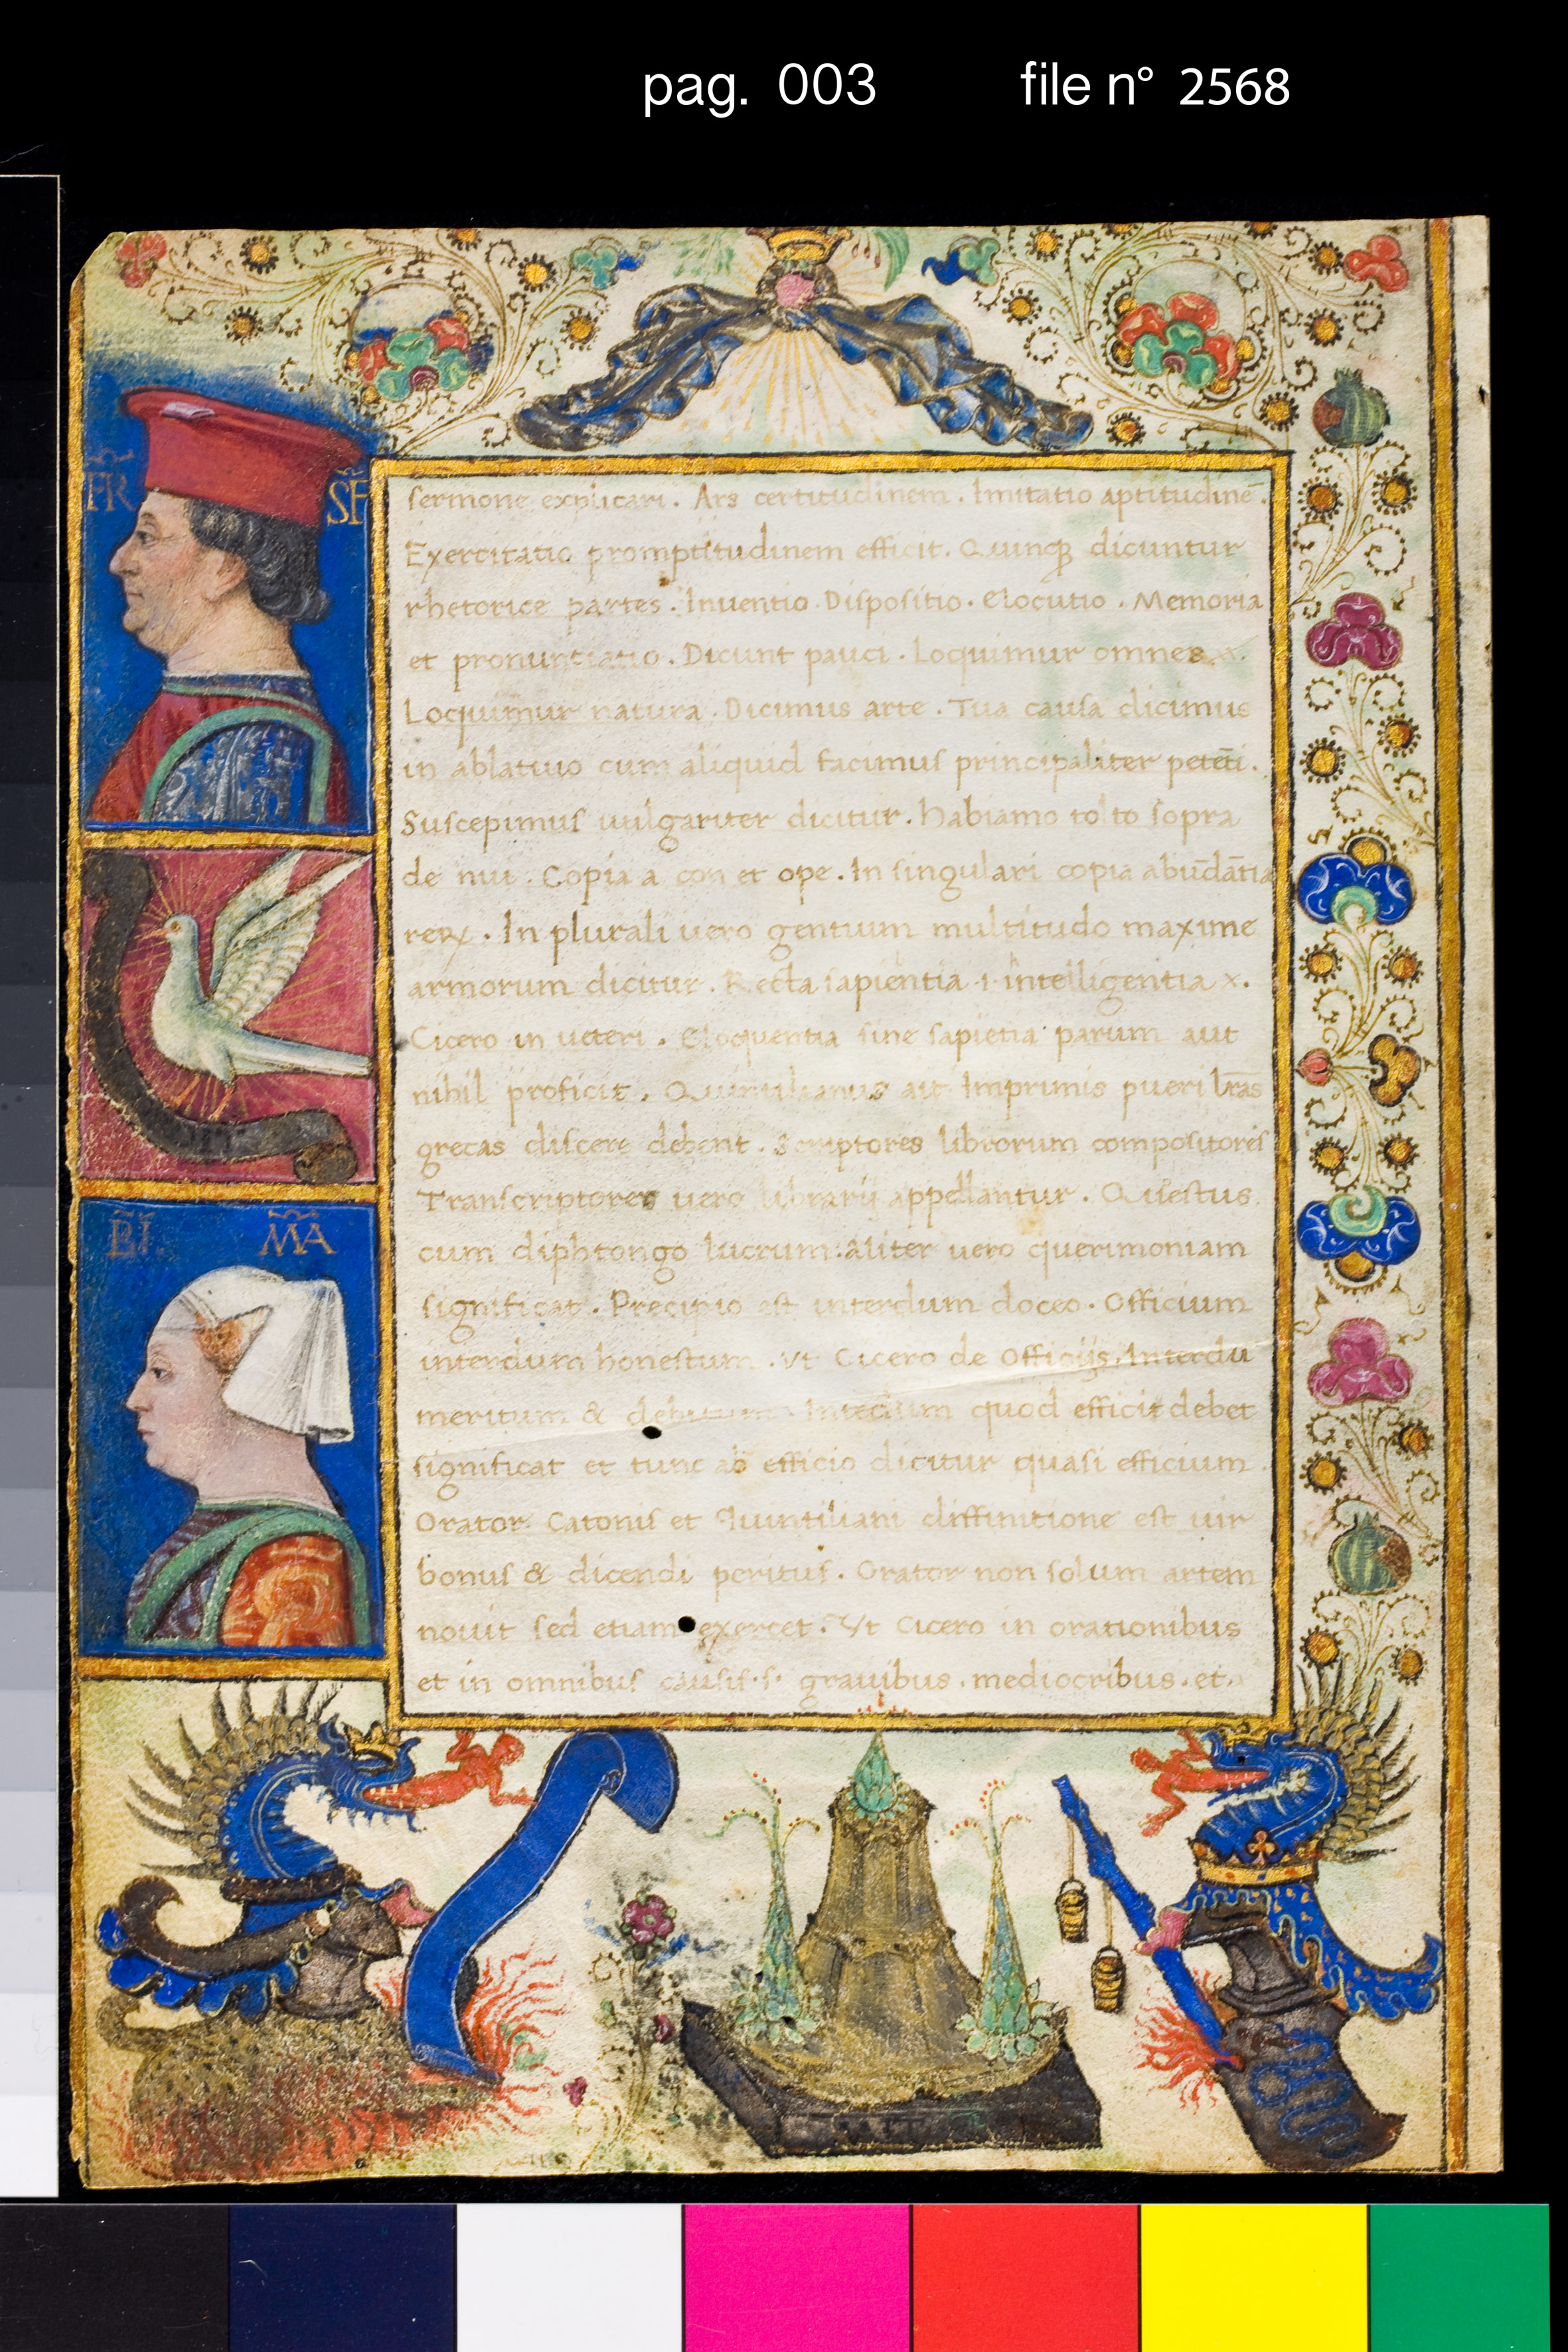 pag. 003 file n° 2568
FR SF
sermone explicari . Ars certitudinem . Imitatio aptitudinē .
Exercitatio promptitudinem efficit . Quinqꝫ dicuntur
rhetorice partes . Inuentio . Dispositio . Elocutio . Memoria
et pronuntiatio . Dicunt pauci . Loquimur omnes .
Loquimur natura . Dicimus arte . Tua causa dicimus
in ablatiuo cum aliquid facimus principaliter petēti .
Suscepimus uulgariter dicitur . habiamo tolto sopra
de nui . Copia a con et ope . In singulari copia abūdātia
reꝝ . In plurali uero gentium multitudo maxime
armorum dicitur . Recta sapientia .i. intelligentia x .
Cicero in ueteri . Eloquentia sine sapiētia parum aut
nihil proficit . Quintilianus ait Imprimis pueri lr̄as
grecas discere debent . Scriptores librorum compositores
Transcriptores uero librarii appellantur . Questus
cum diphtongo lucrum : aliter uero querimoniam
significat . Precipio est interdum doceo . Officium
interdum honestum . Vt Cicero de Officijs . Interdū
meritum & debitum . Interdum quod efficit debet
significat et tunc ab efficio dicitur quasi efficium .
Orator Catonis et Quintiliani diffinitione est uir
bonus & dicendi peritus . Orator non solum artem
nouit sed etiam exercet . Vt Cicero in orationibus
et in omnibus causis .s. grauibus . mediocribus . et
BI . MA